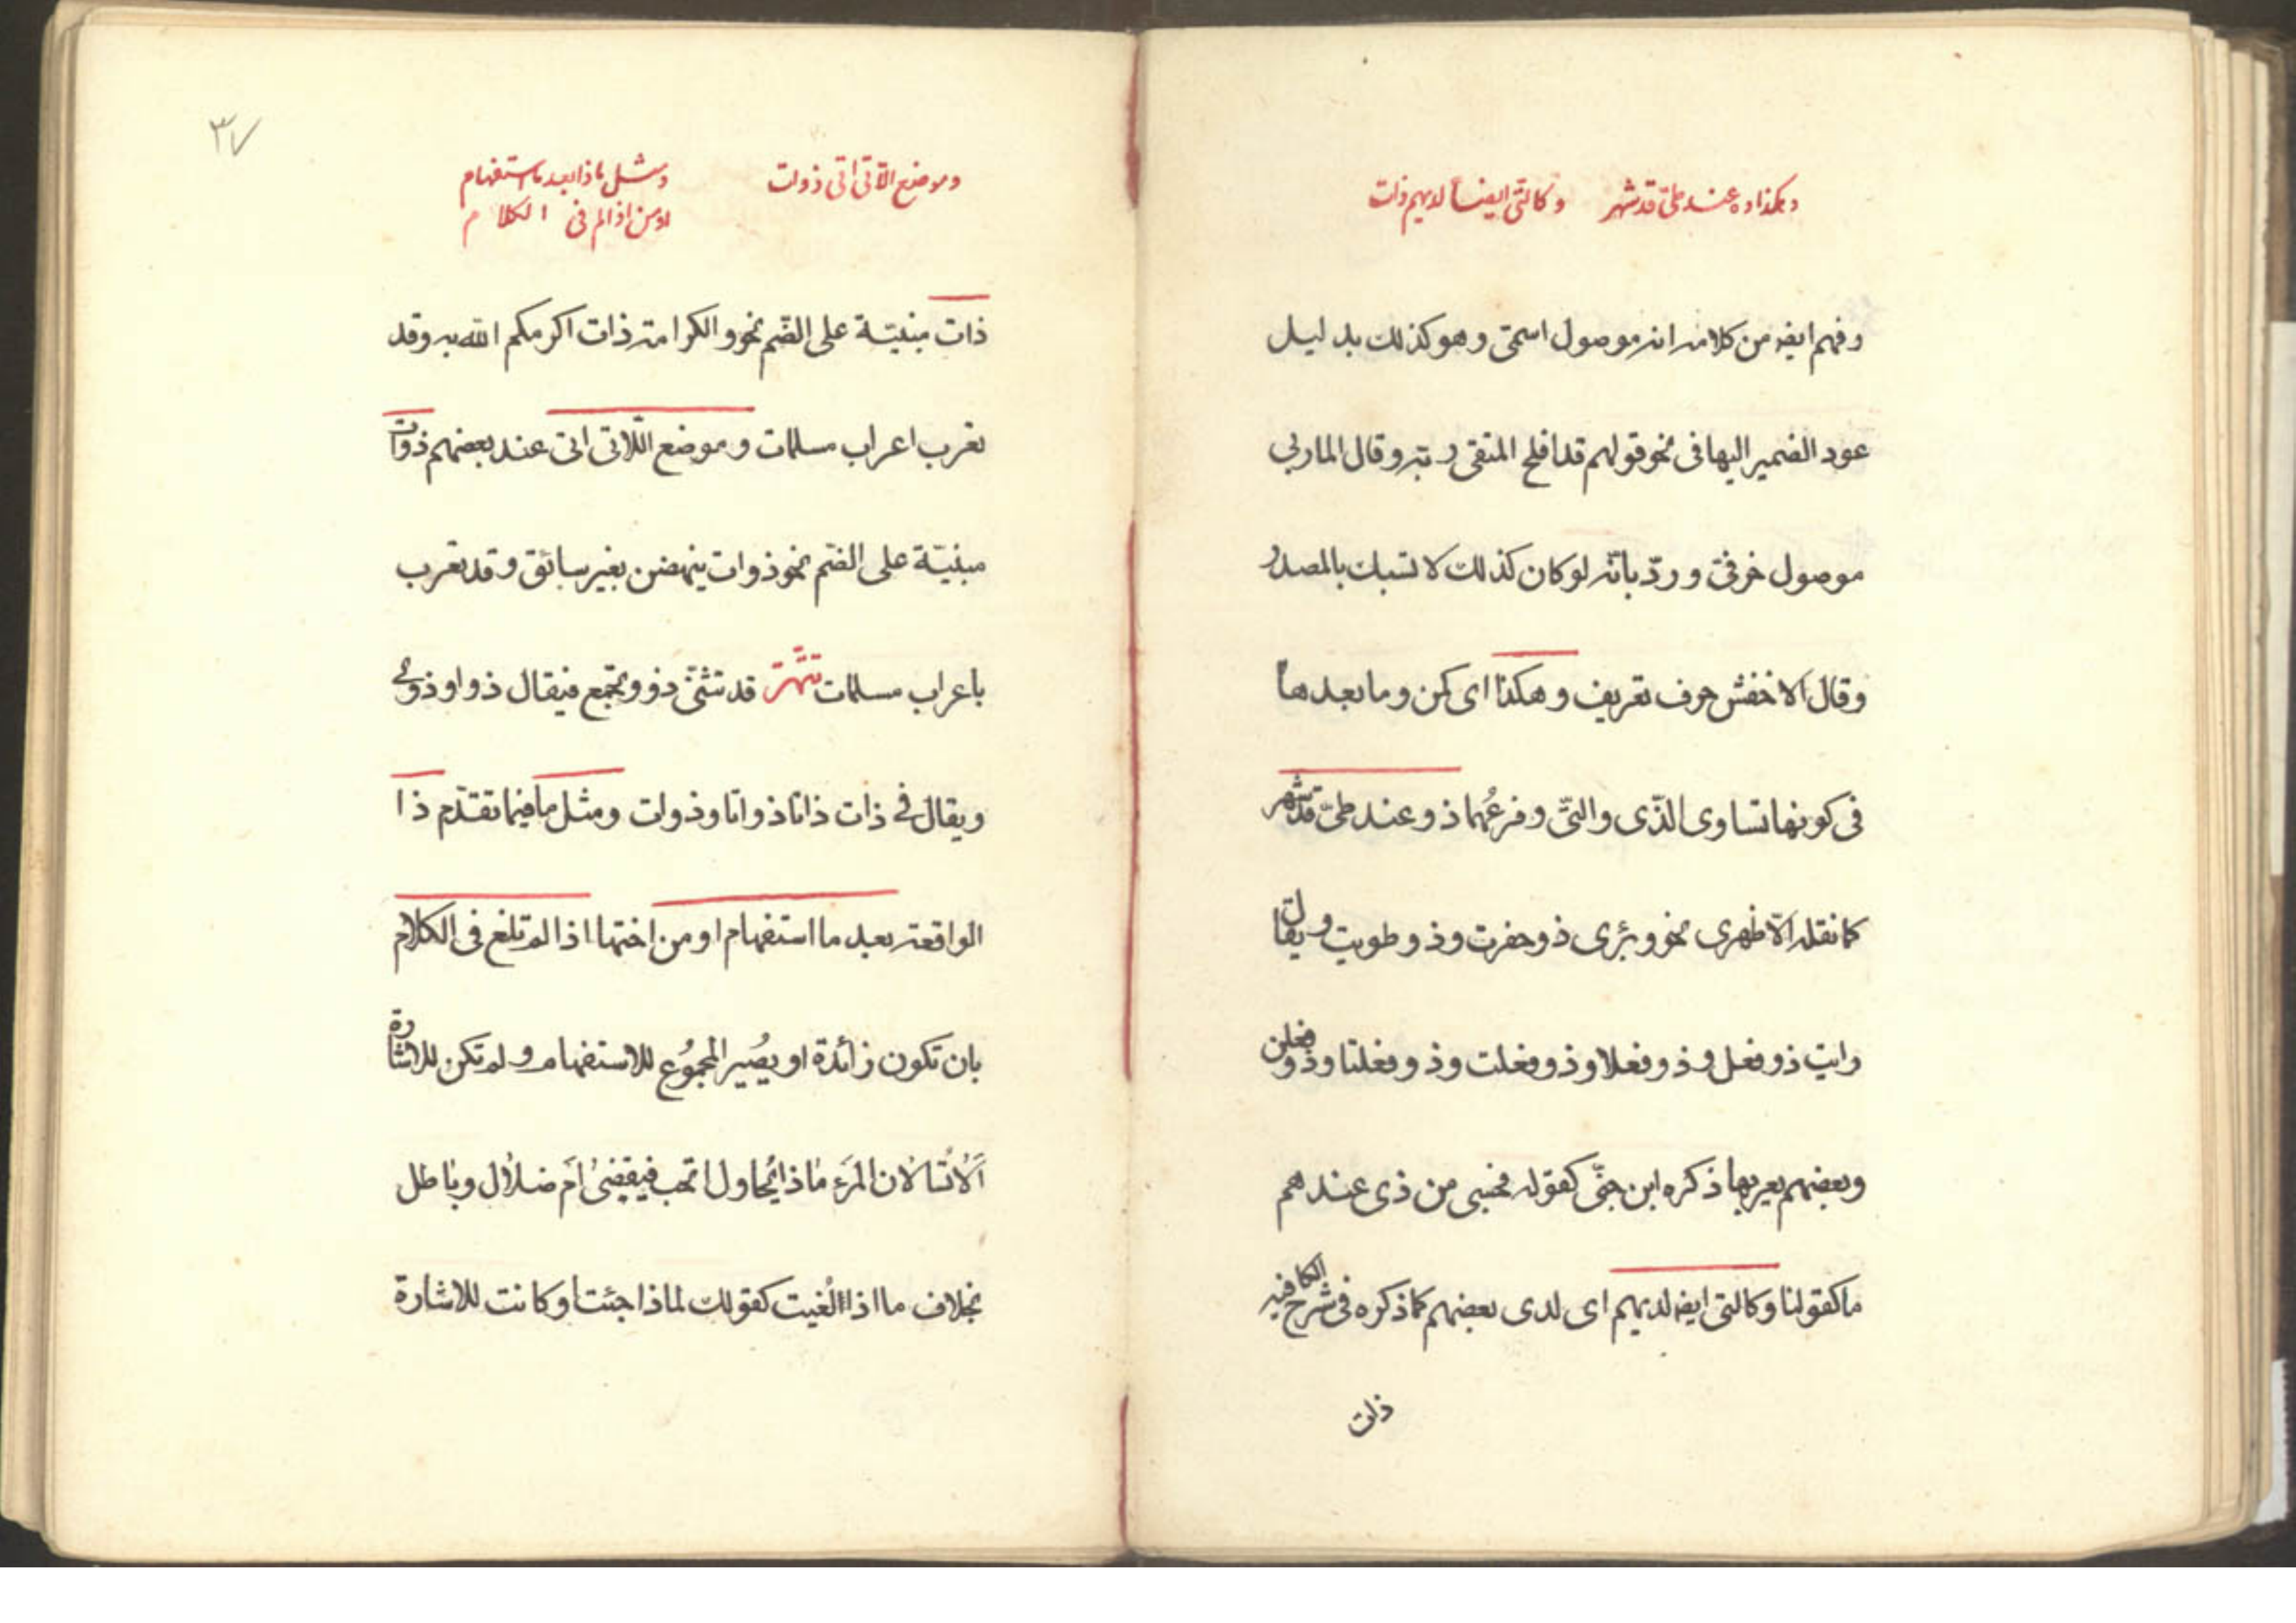 وهكذا ذو عند طيّ قد شهر وكالتي ايضاً لديهم ذات
وفهم ايضه من كلامه انه موصول اسمىّ وهو كذلك بدليل
عود الضمير اليها فى نحو قولهم قد افلح المتقى ربّه وقال المازنى
موصول حرفىّ وردّ بانّه لو كان كذلك لانسبك بالمصدر
وقال الاخفش حرف تعريف وهكذا اى كمن وما بعدها
فى كونها تساوى الذّى والتىّ وفرعُهما ذو عند طىّ قد شهر
كما نقله الازهرى نحو وبئرى ذو حفرت وذو طويت ويقال
رايت ذو فعل وذو فعلا وذو فعلت وذو فعلتا وذو فعلن
وبعضهم يعربها ذكره ابن جنّى كقوله فحسبى من ذى عندهم
ما كفولنا وكالتى ايضه لديهم اى لدى بعضهم كما ذكره فى شرح الكافيه
ذات
٣٧
وموضع اللاتي اتى ذوات
ومثل ما ذا بعد ما استفهام
او من اذا لم تلغ فى الكلام
ذات مبنيّة على الضّم نحو والكرامة ذات اكرمكم الله به وقد
تعرب اعراب مسلمات وموضع اللّاتى اتى عند بعضهم ذوات
مبنيّة على الضّم نحو ذوات ينهضن بغير سائق وقد تعرب
باعراب مسلمات تتمّة قد تثنّى ذو وتجمع فيقال ذوا وذوى
ويقال فى ذات ذاتا ذواتا وذوات ومثل ما فيما تقدّم ذا
الواقعة بعد ما استفهام او من اختها اذا لم تلغ فى الكلام
بان تكون زائدة او يصُير المجموُع للاستفهام ولم تكن للاشارة
الا تسالان المرَء ما ذا يُحاول انحب فيقضىٰ ام ضلال وباطل
بخلاف ما اذا اُلغيت كقولك لماذا جئت او كانت للاشارة